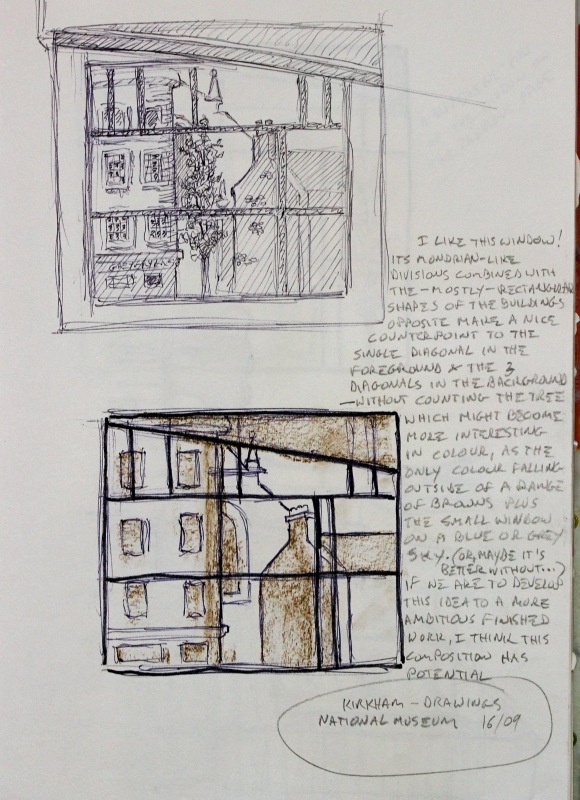 I LIKE THIS WINDOW!
ITS MONDRIAN-LIKE
DIVISIONS COMBINED WITH
THE-MOSTLY-RECTANGULAR
SHAPES OF THE BUILDINGS
OPPOSITE MAKE A NICE
COUNTERPOINT TO THE
SINGLE DIAGONAL IN THE
FOREGROUND & THE 3
DIAGONALS IN THE BACKGROUND
-WITHOUT COUNTING THE TREE
WHICH MIGHT BECOME
MORE INTERESTING
IN COLOUR, AS THE
ONLY COLOUR FALLING
OUTSIDE OF A RANGE
OF BROWNS PLUS
THE SMALL WINDOW
ON A BLUE OR GREY
SKY. (OR, MAYBE IT'S
BETTER WITHOUT...)
IF WE ARE TO DEVELOP
THIS IDEA TO A MORE
AMBITIOUS FINISHED
WORK, I THINK THIS
COMPOSITION HAS
POTENTIAL
KIRKHAM - DRAWINGS
NATIONAL MUSEUM 16/09